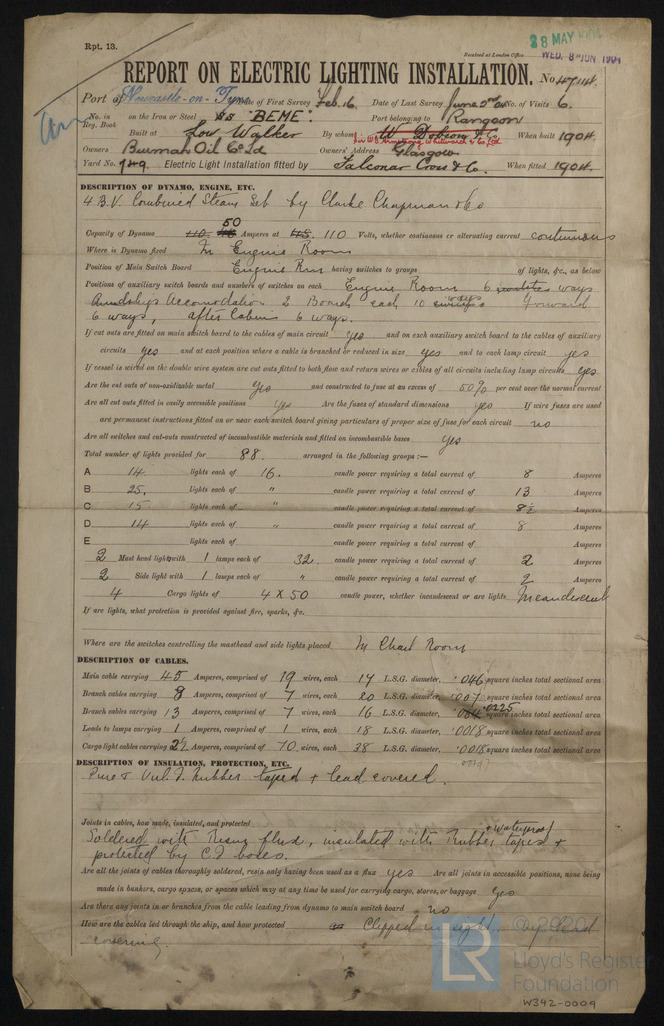 Rpt. 13.
Received at London Office
28 MAY 1904
WED. 8 JUN 1904
REPORT ON ELECTRIC LIGHTING INSTALLATION. No.
Port of Newcastle-on-Tyne Date of First Survey Feb. 16 Date of Last Survey June 2nd No. of Visits 6.
No. in Reg. Book on the Iron or Steel SS "BEME" Port belonging to Rangoon
Built at Low Walker By whom W Dobson & Co. When built 1904
Sir WG Armstrong Whitworth & Co Ltd
Owners Burmah Oil Co Ld Owners' Address Glasgow
Yard No. 749 Electric Light Installation fitted by Falconar Cross & Co. When fitted 1904.
DESCRIPTION OF DYNAMO, ENGINE, ETC.
4 B.V. Combined Steam Set by Clarke Chapman & Co
50
Capacity of Dynamo 110 Amperes at 110 Volts, whether continuous or alternating current continuous
Where is Dynamo fixed In Engine Room
Position of Main Switch Board Engine Rm having switches to groups of lights, &c., as below
Positions of auxiliary switch boards and numbers of switches on each Engine Room 6 switches ways
Amidships Accomodation 2 Boards each 10 switches ways Forward
6 ways, after Cabins 6 ways.
If cut outs are fitted on main switch board to the cables of main circuit yes and on each auxiliary switch board to the cables of auxiliary
circuits yes and at each position where a cable is branched or reduced in size yes and to each lamp circuit yes
If vessel is wired on the double wire system are cut outs fitted to both flow and return wires or cables of all circuits including lamp circuits yes
Are the cut outs of non-oxidizable metal yes and constructed to fuse at an excess of 50% per cent over the normal current
Are all cut outs fitted in easily accessible positions yes Are the fuses of standard dimensions yes If wire fuses are used
are permanent instructions fitted on or near each switch board giving particulars of proper size of fuse for each circuit no
Are all switches and cut-outs constructed of incombustible materials and fitted on incombustible bases yes
Total number of lights provided for 88. arranged in the following groups :—
A 14 lights each of 16. candle power requiring a total current of 8 Amperes
B 25. lights each of " candle power requiring a total current of 13 Amperes
C 15 lights each of " candle power requiring a total current of 8½ Amperes
D 14 lights each of " candle power requiring a total current of 8 Amperes
E lights each of candle power requiring a total current of Amperes
2 Mast head light with 1 lamps each of 32. candle power requiring a total current of 2 Amperes
2 Side light with 1 lamps each of " candle power requiring a total current of 2 Amperes
4 Cargo lights of 4 X 50 candle power, whether incandescent or arc lights Incandescent
If arc lights, what protection is provided against fire, sparks, &c.
Where are the switches controlling the masthead and side lights placed In Chart Room
DESCRIPTION OF CABLES.
Main cable carrying 45 Amperes, comprised of 19 wires, each 17 L.S.G. diameter, .046 square inches total sectional area
Branch cables carrying 8 Amperes, comprised of 7 wires, each 20 L.S.G. diameter, .007 square inches total sectional area
Branch cables carrying 13 Amperes, comprised of 7 wires, each 16 L.S.G. diameter, .0225 square inches total sectional area
Leads to lamps carrying 1 Amperes, comprised of 1 wires, each 18 L.S.G. diameter, .0018 square inches total sectional area
Cargo light cables carrying 2½ Amperes, comprised of 70 wires, each 38 L.S.G. diameter, .0018 square inches total sectional area
DESCRIPTION OF INSULATION, PROTECTION, ETC.
Pure & Vul. I. Rubber taped & lead covered.
Joints in cables, how made, insulated, and protected
Soldered with Resin flux, insulated with Rubber & waterproof tapes &
protected by C.I. boxes.
Are all the joints of cables thoroughly soldered, resin only having been used as a flux yes Are all joints in accessible positions, none being
made in bunkers, cargo spaces, or spaces which may at any time be used for carrying cargo, stores, or baggage yes
Are there any joints in or branches from the cable leading from dynamo to main switch board no
How are the cables led through the ship, and how protected Clipped in sight. by lead
covering.
© 2020
LR
Lloyd's Register
Foundation
W342-0009